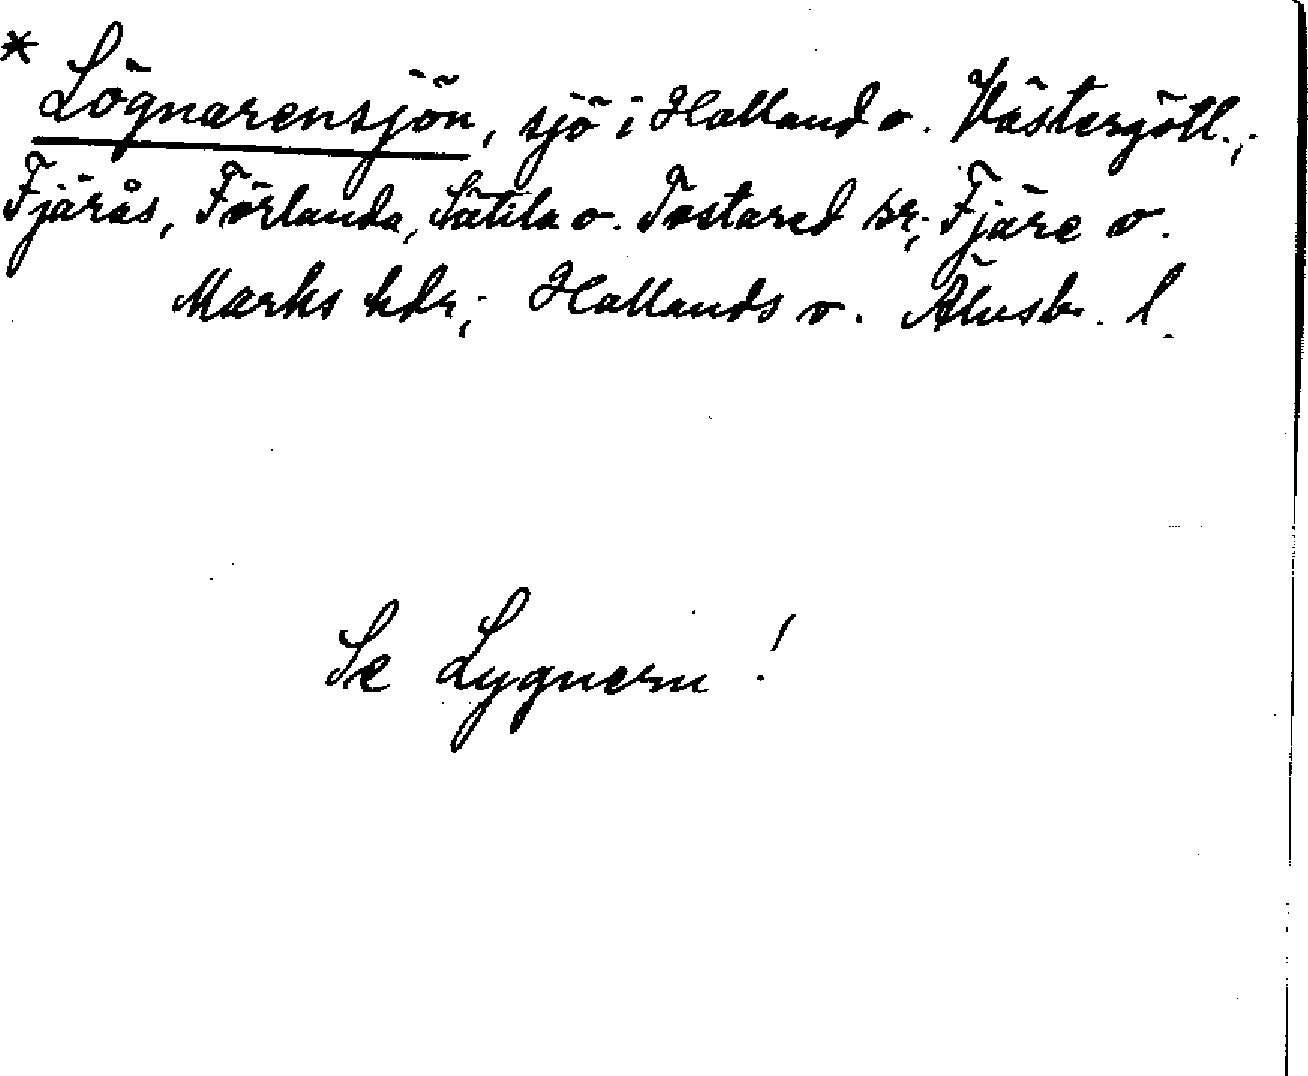 * Lögnarensjön, sjö i Halland o. Västergötl.;
Fjärås, Förlanda, Sätila o. Tostared snr; Fjäre o.
Marks hdr; Hallands o. Älvsb. l.
Se Lygnern!